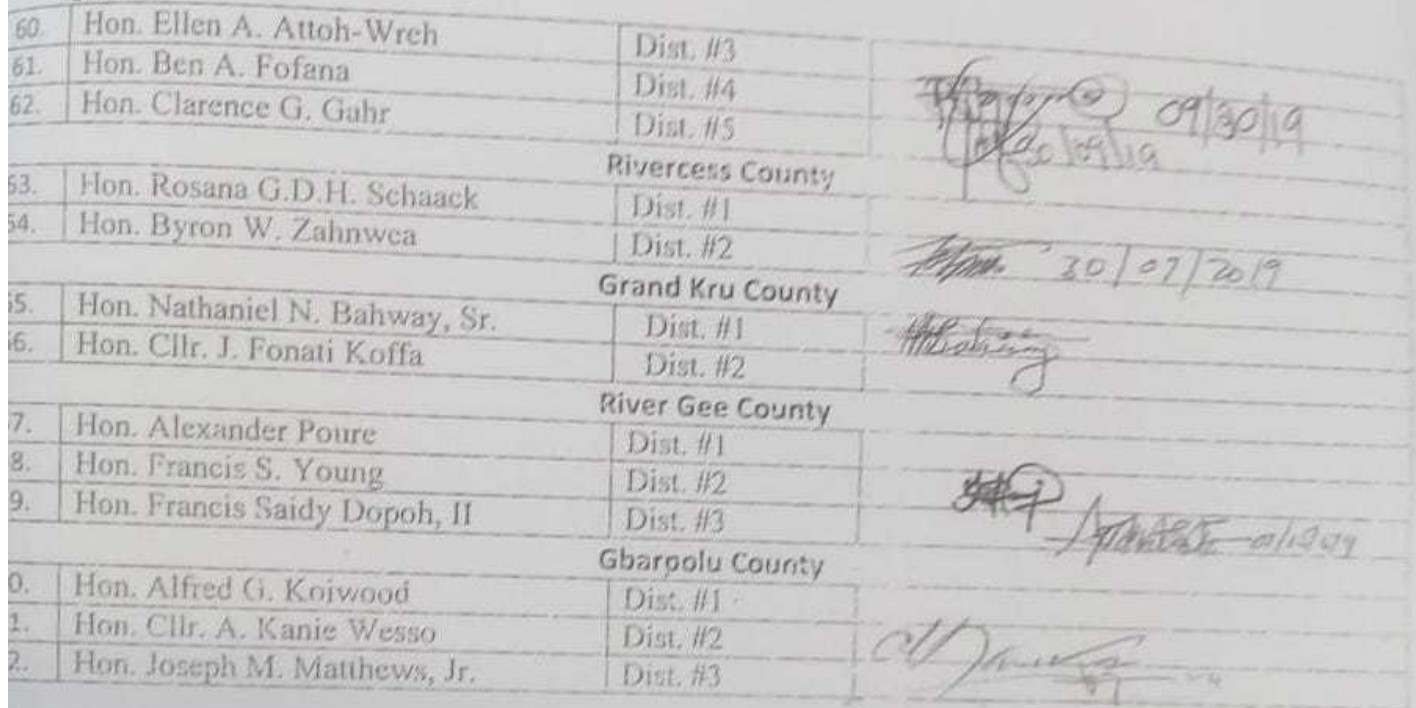 60. Hon. Ellen A. Attoh-Wreh Dist. #3
61. Hon. Ben A. Fofana Dist. #4 09/30/19
62. Hon. Clarence G. Gahr Dist. #5 /09/19
Rivercess County
63. Hon. Rosana G.D.H. Schaack Dist. #1
54. Hon. Byron W. Zahnwea Dist. #2 30/07/2019
Grand Kru County
5. Hon. Nathaniel N. Bahway, Sr. Dist. #1
6. Hon. Cllr. J. Fonati Koffa Dist. #2
River Gee County
7. Hon. Alexander Poure Dist. #1
8. Hon. Francis S. Young Dist. #2
9. Hon. Francis Saidy Dopoh, II Dist. #3
Gbarpolu County
0. Hon. Alfred G. Koiwood Dist. #1
1. Hon. Cllr. A. Kanie Wesso Dist. #2
2. Hon. Joseph M. Matthews, Jr. Dist. #3